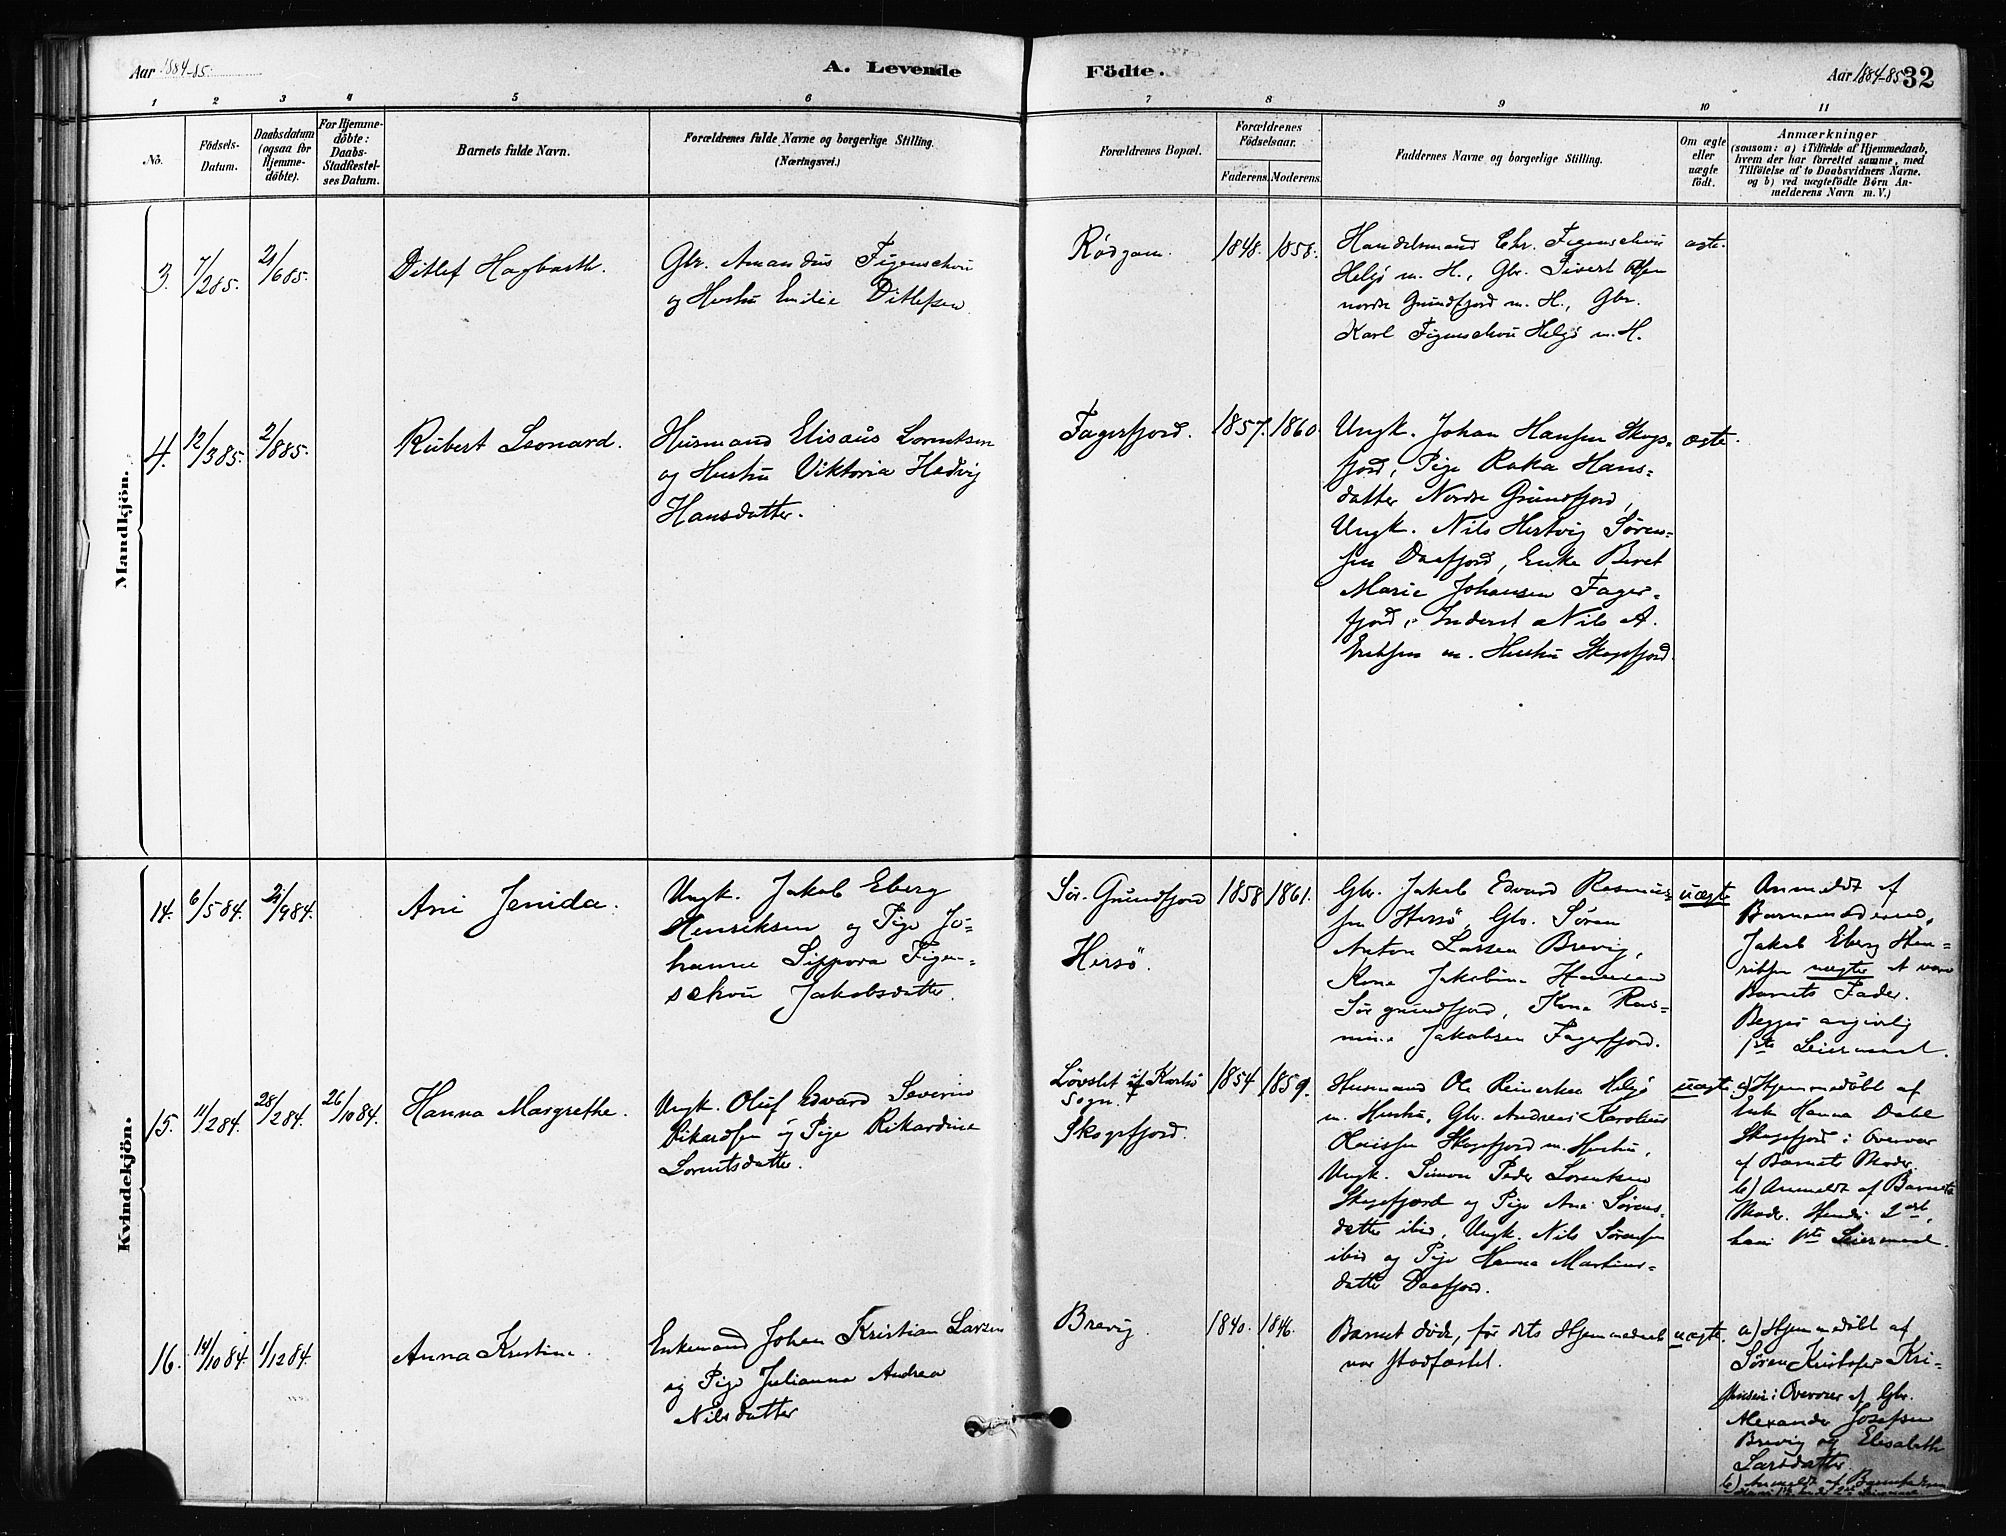 Aar 1884-85.
A. Levende
Födte.
Aar 1884-85
32
1 2 3 4 5 6 7 8 9 10 11
No.
Födsels-Datum.
Daabsdatum (ogsaa for Hjemmedöbte).
For Hjemmedöbte: Daabs-Stadfæstelses Datum.
Barnets fulde Navn.
Forældrenes fulde Navne og borgerlige Stilling.
(Næringsvei.)
Forældrenes Bopæl.
Forældrenes Födselsaar.
Faderens. Moderens.
Faddernes Navne og borgerlige Stilling.
Om ægte eller uægte födt.
Anmærkninger
(saasom: a) i Tilfælde af Hjemmedaab,
hvem der har forrettet samme, med
Tilföielse af to Daabsvidners Navne.
og b) ved uægtefödte Börn An-
melderens Navn m. V.)
Mandkjön.
3. 7/285. 21/685.
Ditlef Hagbarth.
Gbr. Amandus Figenschou
og Hustru Emilie Ditlefsen
Rødgam.
1848. 1858.
Handelsmand Chr. Figenschou
Helgö m. H., Gbr. Sivert Olsen
nordre Grundfjord m. H., Gbr.
Karl Figenschou Helgö m. H.
ægte.
4. 12/385. 2/885.
Rubert Leonard.
Husmand Elisæus Lorentsen
og Hustru Viktoria Hedvig
Hansdatter.
Fagerfjord.
1857. 1860.
Ungk. Johan Hansen Skogs-
fjord, Pige Raka Hans-
datter Nordre Grundfjord,
Ungk. Nils Hertvig Søren-
sen Daafjord, Enke Beret
Marie Johansen Fager-
fjord, Inderst Nils A.
Eriksen m. Hustru Skogsfjord.
ægte.
Kvindekjön.
14. 6/584. 21/984.
Ane Jenida.
Ungk. Jakob Eberg
Henriksen og Pige Jo-
hanne Sippora Figen-
schou Jakobsdatter.
Sör. Grundfjord
Hersö.
1858 1861.
Gbr. Jakob Edvard Rasmus-
sen Hersö, Gbr. Søren
Anton Larsen Brevig,
Kone Jakobine Hansen
Sör grundfjord, Kone Ras-
mine Jakobsen Fagerfjord.
uægte
Anmeldt af
Barnemoderen,
Jakob Eberg Hen-
riksen nægter at være
Barnets Fader.
Begges angivelig
1ste Leiermaal.
15. 11/284. 28/284. 26/1084.
Hanna Margrethe.
Ungk. Oluf Edvard Severin
Rikardsen og Pige Rikardine
Lorentsdatter.
Løvslet i Karlsö
Sogn.
Skogsfjord.
1854 1859.
Husmand Ole Reinertsen Helgö
m. Hustru, Gbr. Andreas Karolius
Skogsfjord m. Hustru,
Ungk. Simon Peder Lorentsen
Skogsfjord og Pige Ane Sørens-
datter ibid, Ungk. Nils Sørensen
ibid og Pige Hanna Martinus-
datter Daafjord.
uægte
a) Hjemmedöbt af
Enke Hanna Dahl
Skogsfjord i Overvær
af Barnets Moder.
b) Anmeldt af Barnets
Moder. Hendes 2det,
hans 1ste Leiermaal.
16. 14/1084. 1/1284.
Anna Kristine.
Enkemand Johan Kristian Larsen
og Pige Julianna Andrea
Nilsdatter
Brevig.
1840. 1846.
Barnet døde, før dets Hjemmedaab
var stadfæstet.
uægte.
a) Hjemmedöbt af
Søren Kristofer Kri-
stensen i Overvær af Gbr.
Alexander Josefsen
Brevig og Elisabeth
Larsdatter.
b) Anmeldt af Barnefaderen